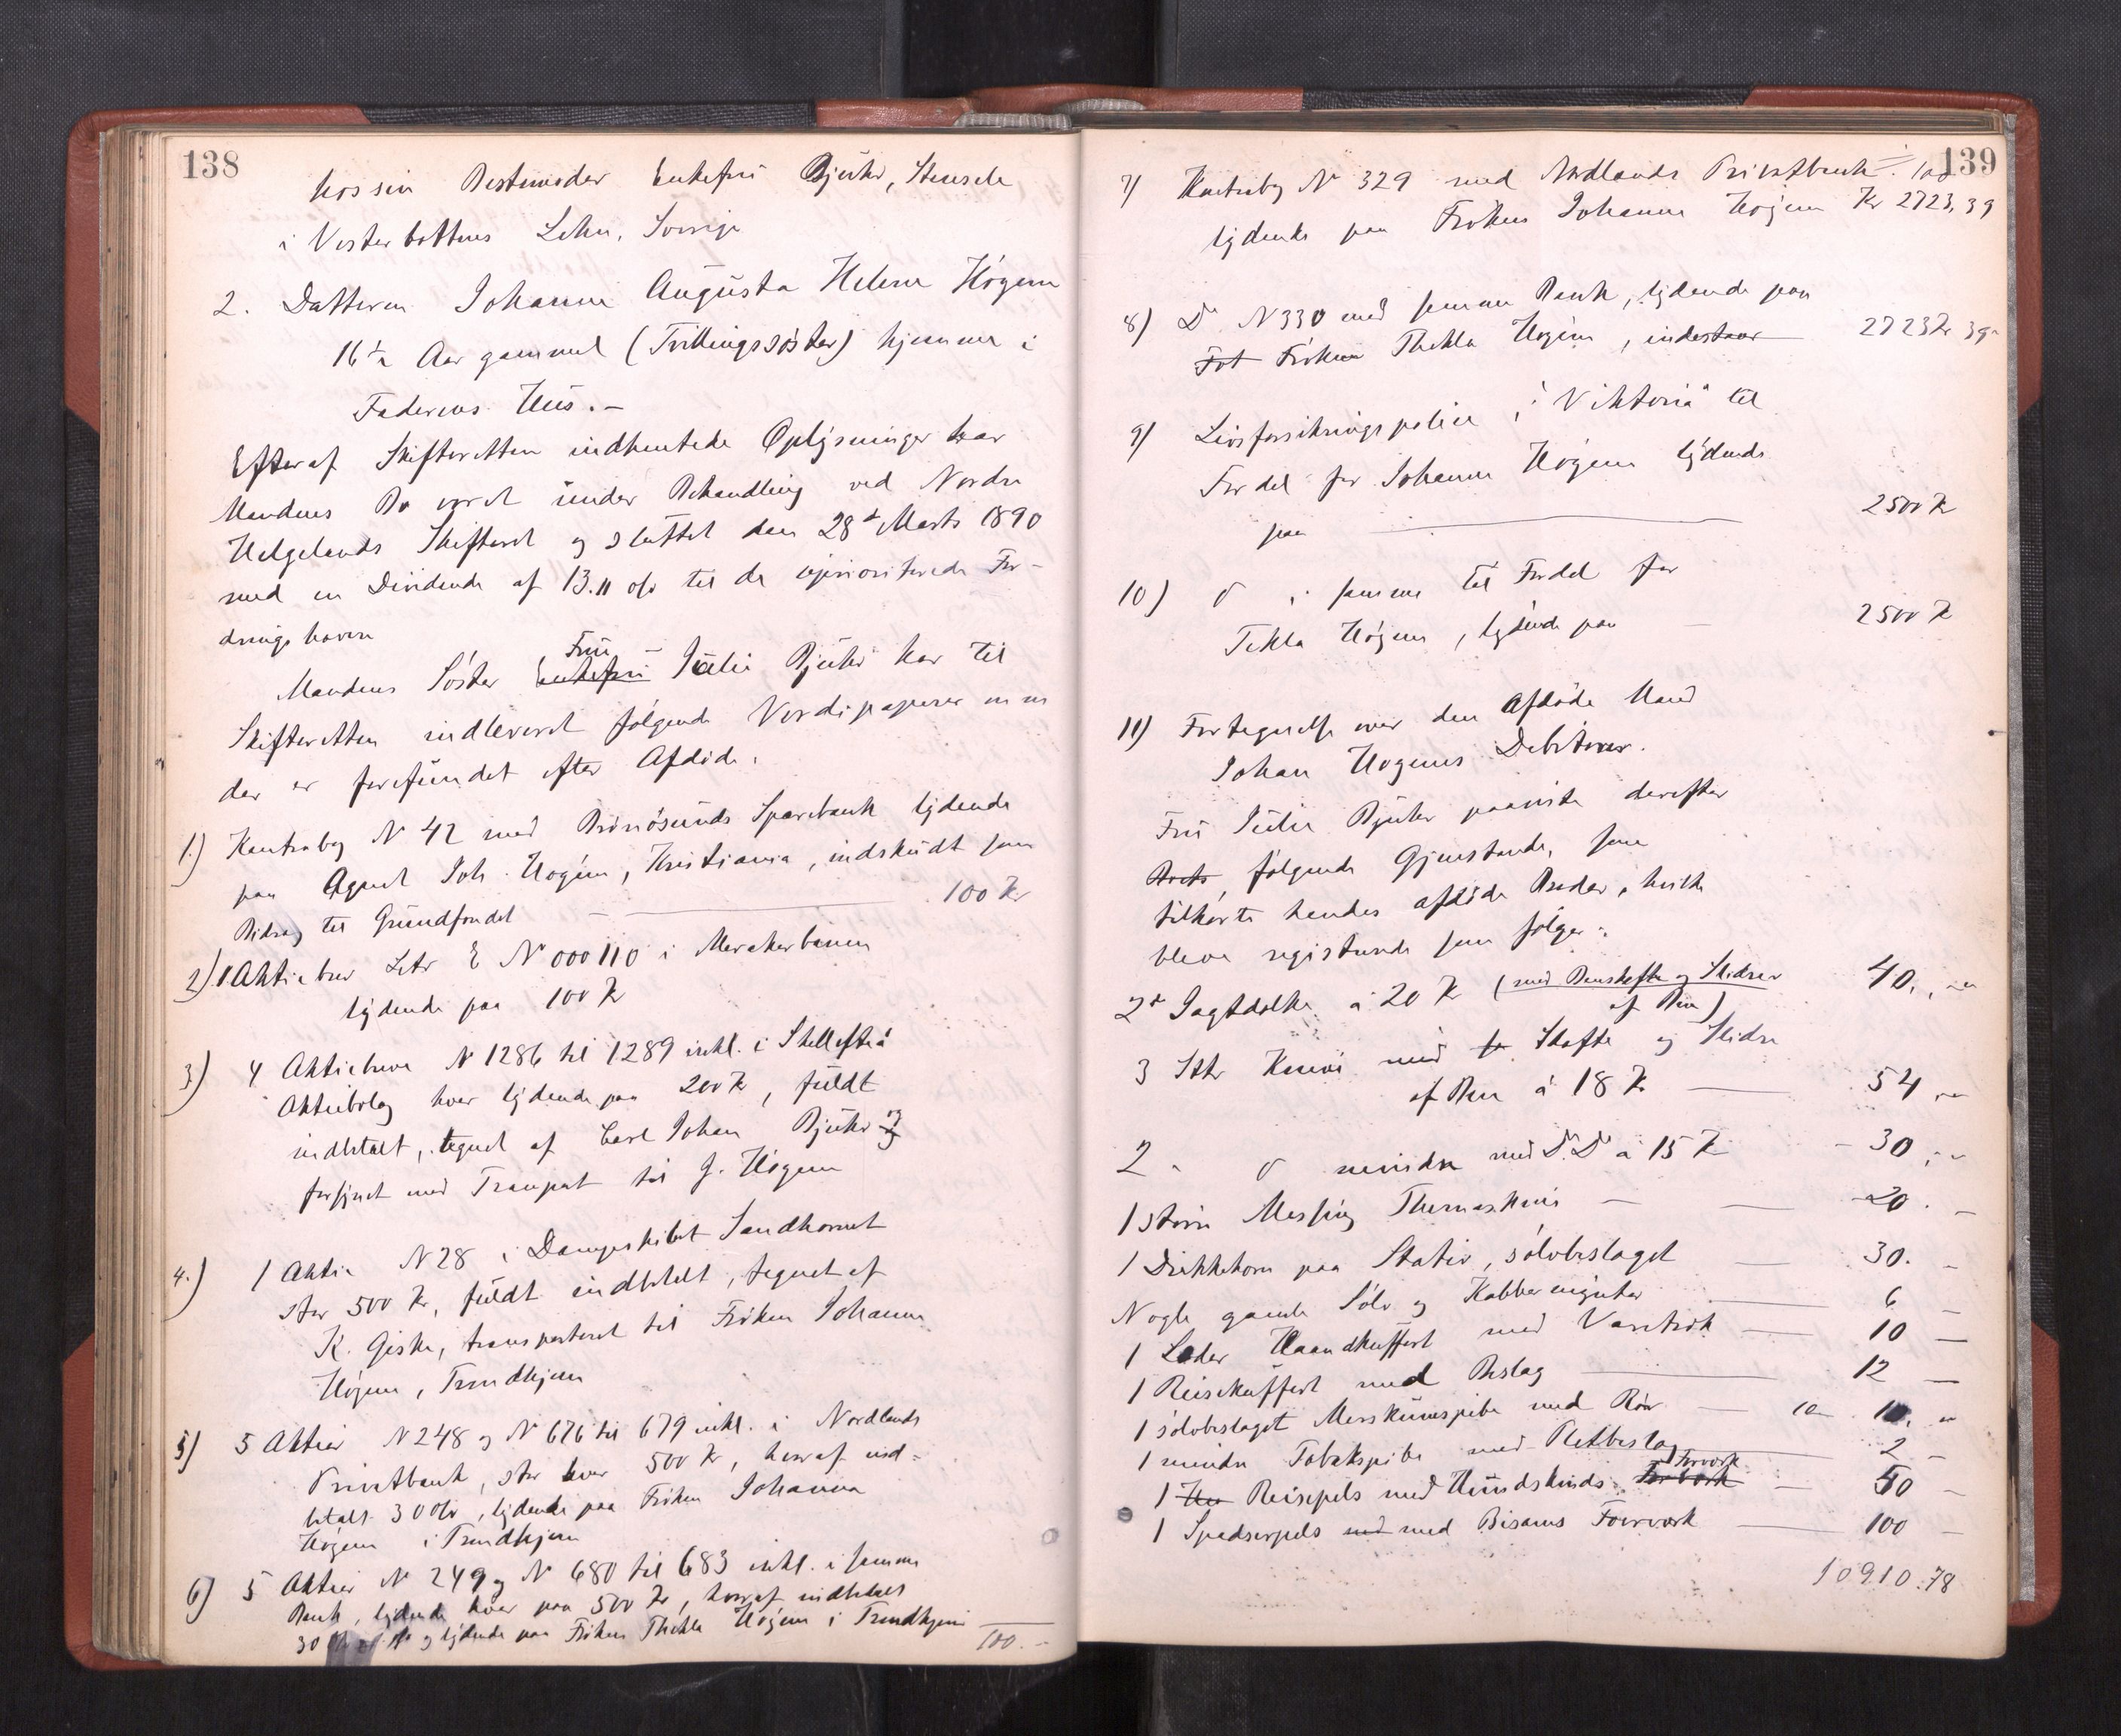 138
hos sin Bestemoder Enkefru Bjuhr, Stensele
i Vesterbottens Lehn, Sverige
2. Datteren Johanne Augusta Helene Högem
16 1/2 Aar gammel (Tvillingssöster) hjemme i
Faderens Hus. –
Efter af Skifteretten indhentede Oplysninger har
Mandens Bo været under Behandling ved Nordre
Helgelands Skifteret og sluttet den 28de Marts 1890
med en Dividende af 13.11 o/o til de uprioriterede For-
dringshavere
Fru
Mandens Söster Enkefru Julie Bjuhr har til
Skifteretten indleveret følgende Verdipapirer m m
der er forefundet efter Afdöde.
1.) Kontrabog N 42 med Brönösunds Sparebank lydende
paa Agent Joh. Högem, Kristiania, indskudt som
Bidrag til Grundfondet — 100 Kr
2) 1 Aktiebrev Litr E No 000110 i Merakerbanen
lydende paa 100 Kr
3) 4 Aktiebreve N 1286 til 1289 inkl. i Skellefteå
Aktiebolag hver lydende paa 200 Kr, fuldt
indbetalt, tegnet af Carl Johan Bjuhr og
forsynet med Transport til J. Högem
4.) 1 Aktie N 28 i Dampskibet Sandhornet
stor 500 Kr, fuldt indbetalt, tegnet af
K. Giske, transporteret til Fröken Johanne
Högem, Trondhjem
5) 5 Aktier N 248 og N 676 til 679 inkl. i Nordlands
Privatbank, stor hver 500 Kr, hvoraf ind-
betalt 30 o/o, lydende paa Fröken Johanna
Högem i Trondhjem
6) 5 Aktier N 249 og N 680 til 683 inkl. i samme
Bank, lydende hver paa 500 Kr, hvoraf indbetalt
30 o/o og lydende paa Fröken Thekla Högem i Trondhjem
100. –
139
7) Kontrabog N 329 med Nordlands Privatbank 100
lydende paa Fröken Johanne Högem Kr 2723,39
8) Do N 330 med samme Bank, lydende paa
Fröken Thekla Högem, indestaar 2723 Kr 39
9) Livsforsikringspolice i "Viktoria" til
Fordel for Johanne Högem lydende
paa — 2500 Kr
10) Do i samme til Fordel for
Tekla Högem, lydende paa — 2500 Kr
11) Fortegnelse over den Afdöde Mand
Johan Högems Debitorer.
Fru Julie Bjuhr paaviste derefter
Boets følgende Gjenstande, som
tilhörte hendes afdöde Broder, hvilke
bleve registrerede som følger:
2 Jagtdolke à 20 Kr (med Benskefte og Skidser 40.,
af Ben)
3 Stk Knive med Skafte og Slidre
af Ben à 18 Kr — 54
2 " Do mindre med Do Do à 15 Kr — 30
1 större Messing Themaskine — 20. –
1 Drikkehorn paa Stativ, sölvbeslaget — 30. –
Nogle gamle Sölv og Kobbermynter — 6 –
1 Læder Haandkuffert med Varetræk — 10 –
1 Reisekuffert med Beslag — 12 –
1 sölvbeslaget Merskumspibe med Rör — 10 10.
1 mindre Tobakspibe med Pletbeslag — 2 –
Forværk
1 Reisepels med Hundskinds Forværk — 40 –
1 Spadserpels med med Bisams Foerværk — 100 –
10910.78